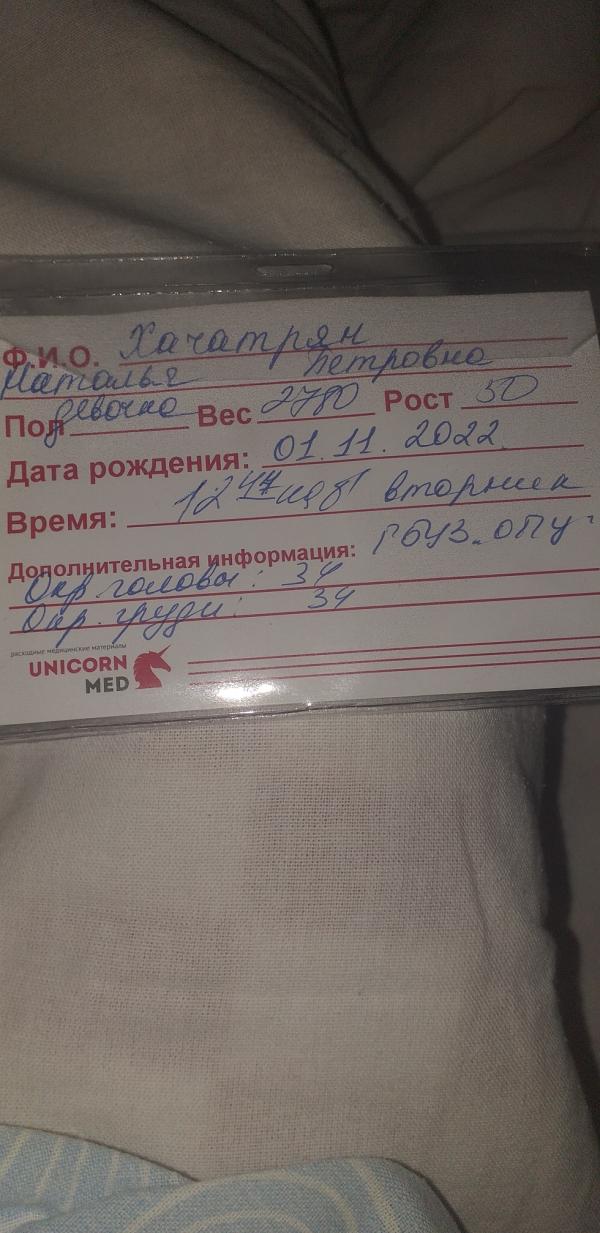 Ф.И.О. Хачатрян
Наталья Петровна
Пол девочка Вес 2780 Рост 50
Дата рождения: 01.11.2022
Время: 12 47 вторник
Дополнительная информация: ГБУЗ "ОПЦ"
Окр головы: 34
Окр. груди: 34
расходные медицинские материалы
UNICORN
MED